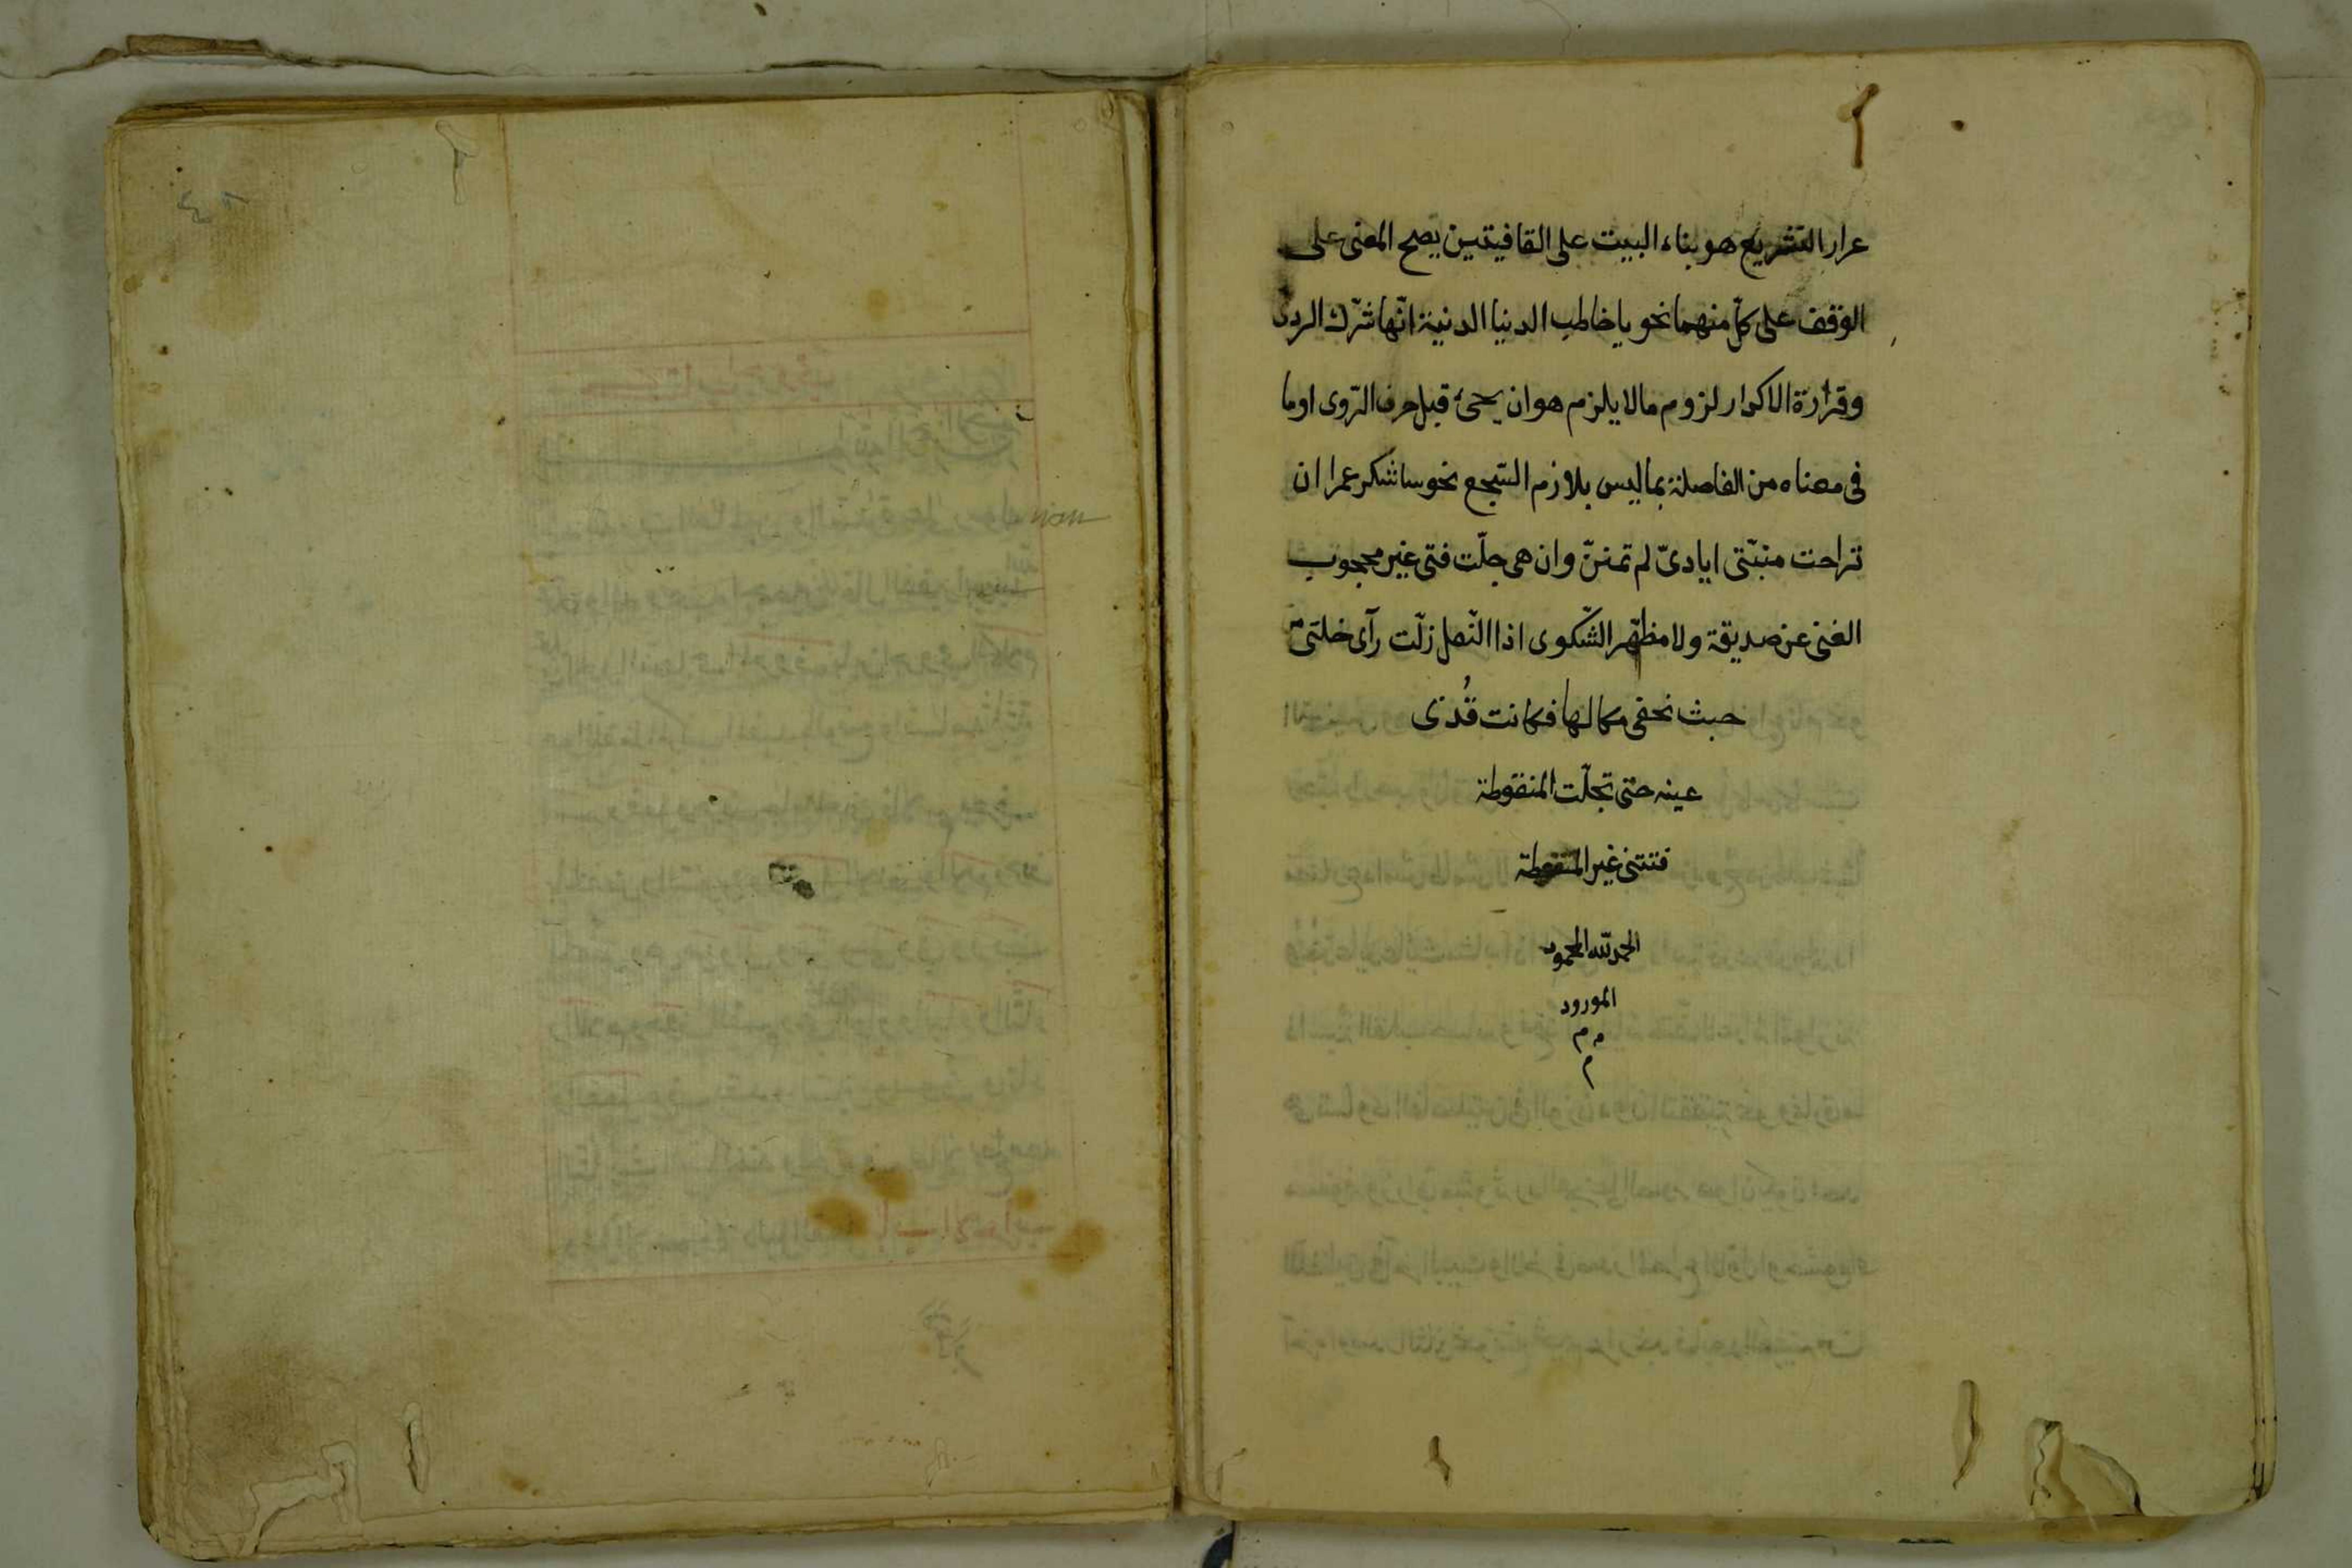 عرار التشريع هو بناء البيت على القافيتين يصح المعنى على
الوقف على كلّ منهما نحو يا خاطب الدنيا الدنية انّها شرك الردى
وقرارة الاكدار لزوم مالا يلزم هو ان يجئ قبل حرف الرّوى او ما
فى معناه من الفاصلة بما ليس بلازم السّجع نحو ساشكر عمرا ان
تراحت منبّتى ايادىّ لم تمنن وان هى جلّت فتى غير محجوب
الغنى عن صديقة ولا مظهر الشّكوى اذا النّعل زلّت رآى خلتى من
حيث نحفى مكالها فكانت قُذى
عينه حتى تجلّت المنقوطة
فتنتنى غير المنقوطة
الحمد لله المحمود
المورود
م م
م